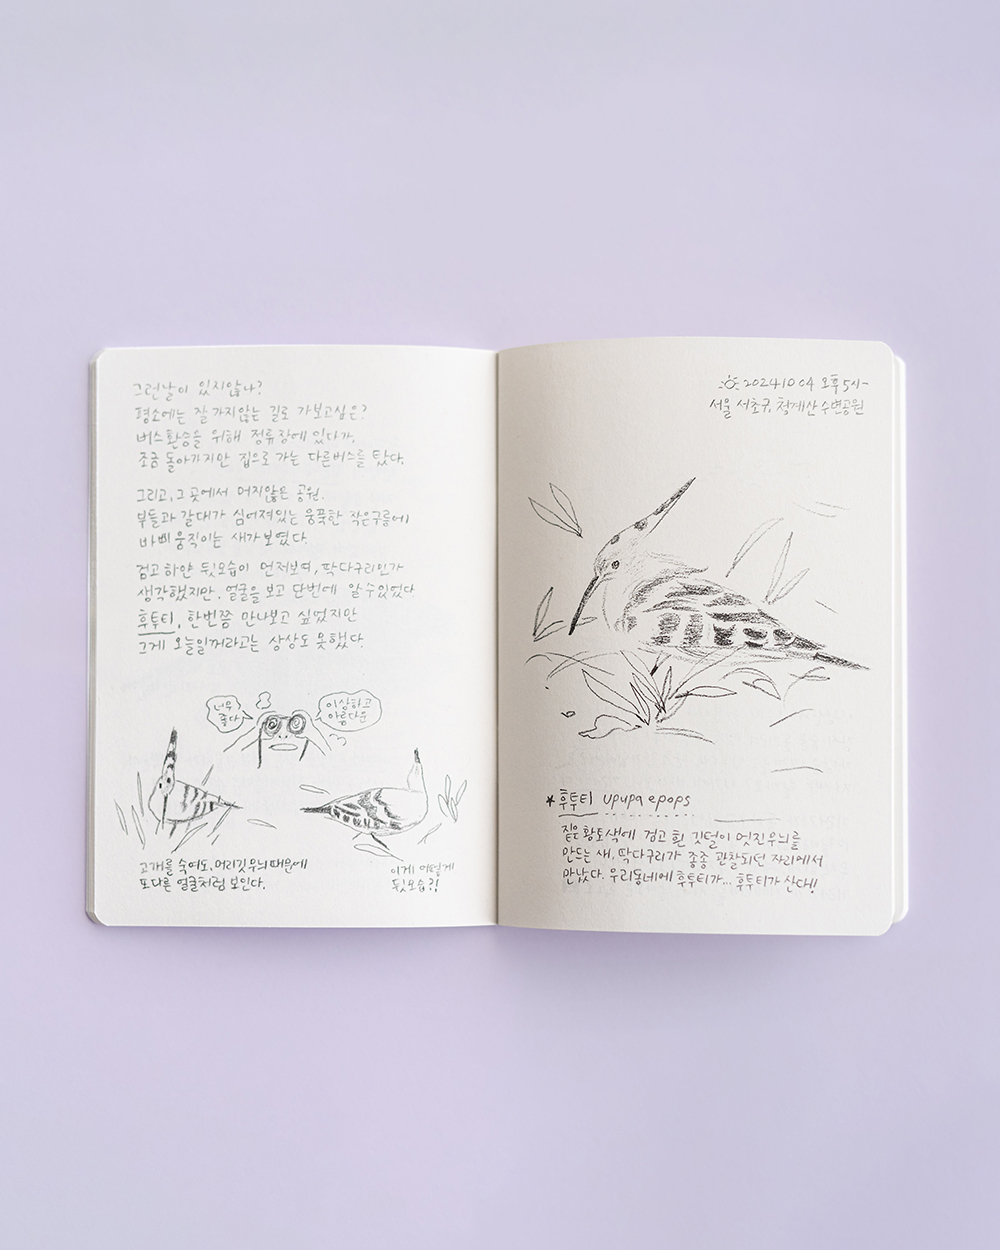 그런날이 있지않나?
평소에는 잘 가지않는 길로 가보고싶은?
버스환승을 위해 정류장에 있다가,
조금 돌아가지만 집으로 가는 다른버스를 탔다.
그리고, 그 곳에서 머지않은 공원.
부들과 갈대가 심어져있는 움푹한 작은구릉에
바삐 움직이는 새가 보였다.
검고 하얀 뒷모습이 먼저보여, 딱다구리인가
생각했지만, 얼굴을 보고 단번에 알 수 있었다
후투티, 한번쯤 만나보고 싶었지만
그게 오늘일꺼라고는 상상도 못했다.
너무
좋다
이상하고
아름다운
고개를 숙여도, 머리깃무늬 때문에
또다른 얼굴처럼 보인다.
이게 어떻게
뒷모습?!
20241004 오후5시~
서울 서초구, 청계산 수변공원
*후투티 upupa epops
짙은 황토색에 검고 흰 깃털이 멋진무늬를
만드는 새, 딱다구리가 종종 관찰되던 자리에서
만났다. 우리동네에 후투티가... 후투티가 산다!